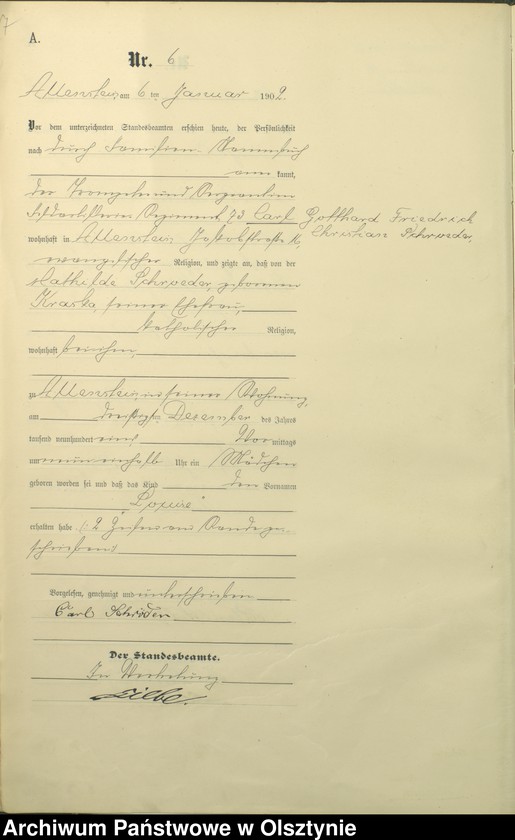 7
A.
Nr. 6
Allenstein, am 6 ten Januar 1902.
Vor dem unterzeichneten Standesbeamten erschien heute, der Persönlichkeit
nach durch Familien Stammbuch
aner kannt,
der Trompeter und Sergeant im
Feldartillerie Regiment 73 Carl Gotthard Friedrich
Christian Schroeder,
wohnhaft in Allenstein, Jakobstraße
evangelischer Religion, und zeigte an, daß von der
Mathilde Schroeder, geborenen
Kraska, seiner Ehefrau,
katholischer Religion,
wohnhaft bei ihm,
zu Allenstein, in seiner Wohnung,
am dreißigsten Dezember des Jahres
tausend neunhundert eins Vor mittags
um neun einhalb Uhr ein Mädchen
geboren worden sei und daß das Kind den Vornamen
erhalten habe /: 2 Zeilen am Rande ge-
schrieben
Vorgelesen, genehmigt und unterschrieben
Carl Schröder
Der Standesbeamte.
In Vertretung
Archiwum Państwowe w Olsztynie